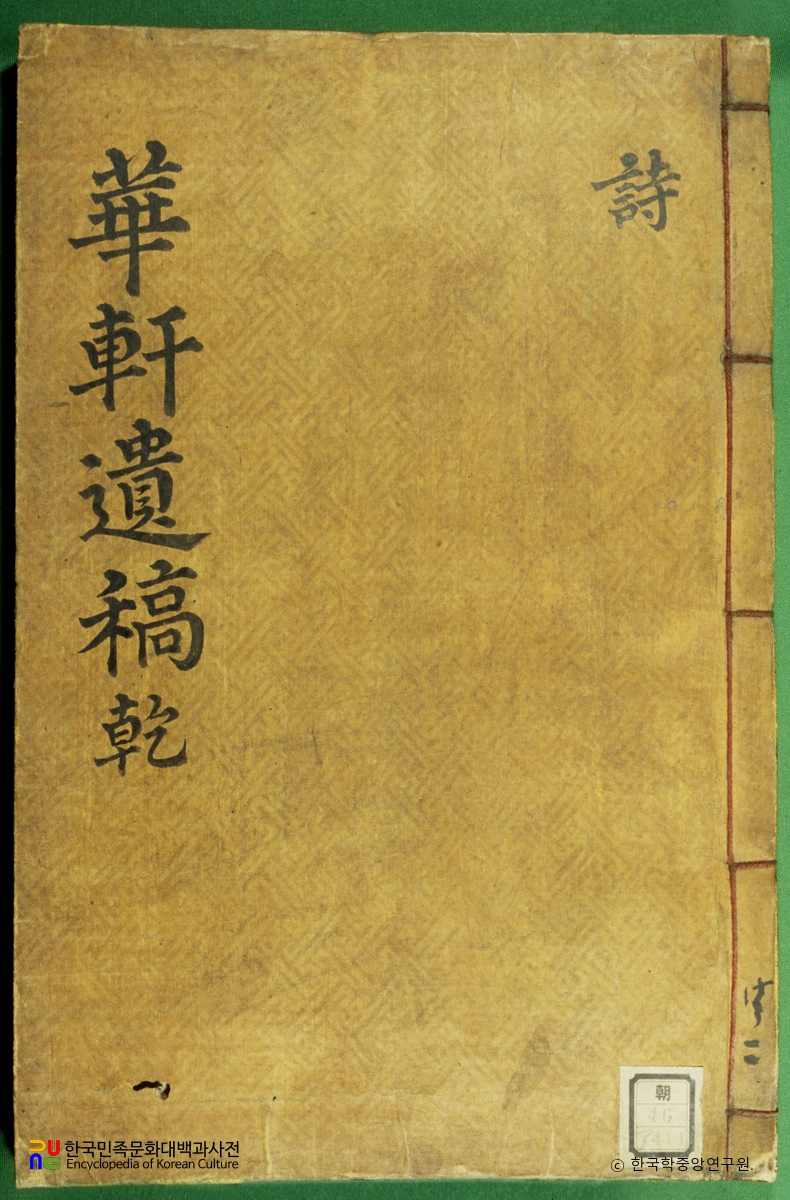 詩
華軒遺稿 乾
共二
朝
46
한국민족문화대백과사전
Encyclopedia of Korean Culture
ⓒ 한국학중앙연구원.